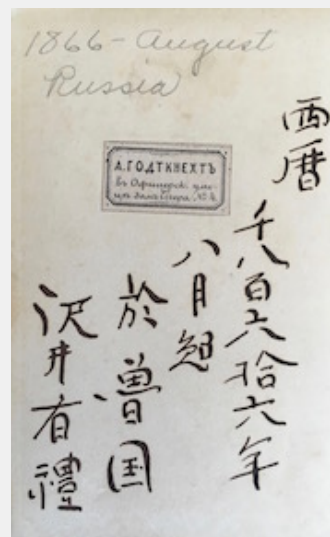 1866 - August
Russia
А. ГОДТКНЕХТЪ
въ Офицерск. ули-
цѣ домъ № 4.
西暦
千八百六拾六年
八月
於魯国
沢井有禮